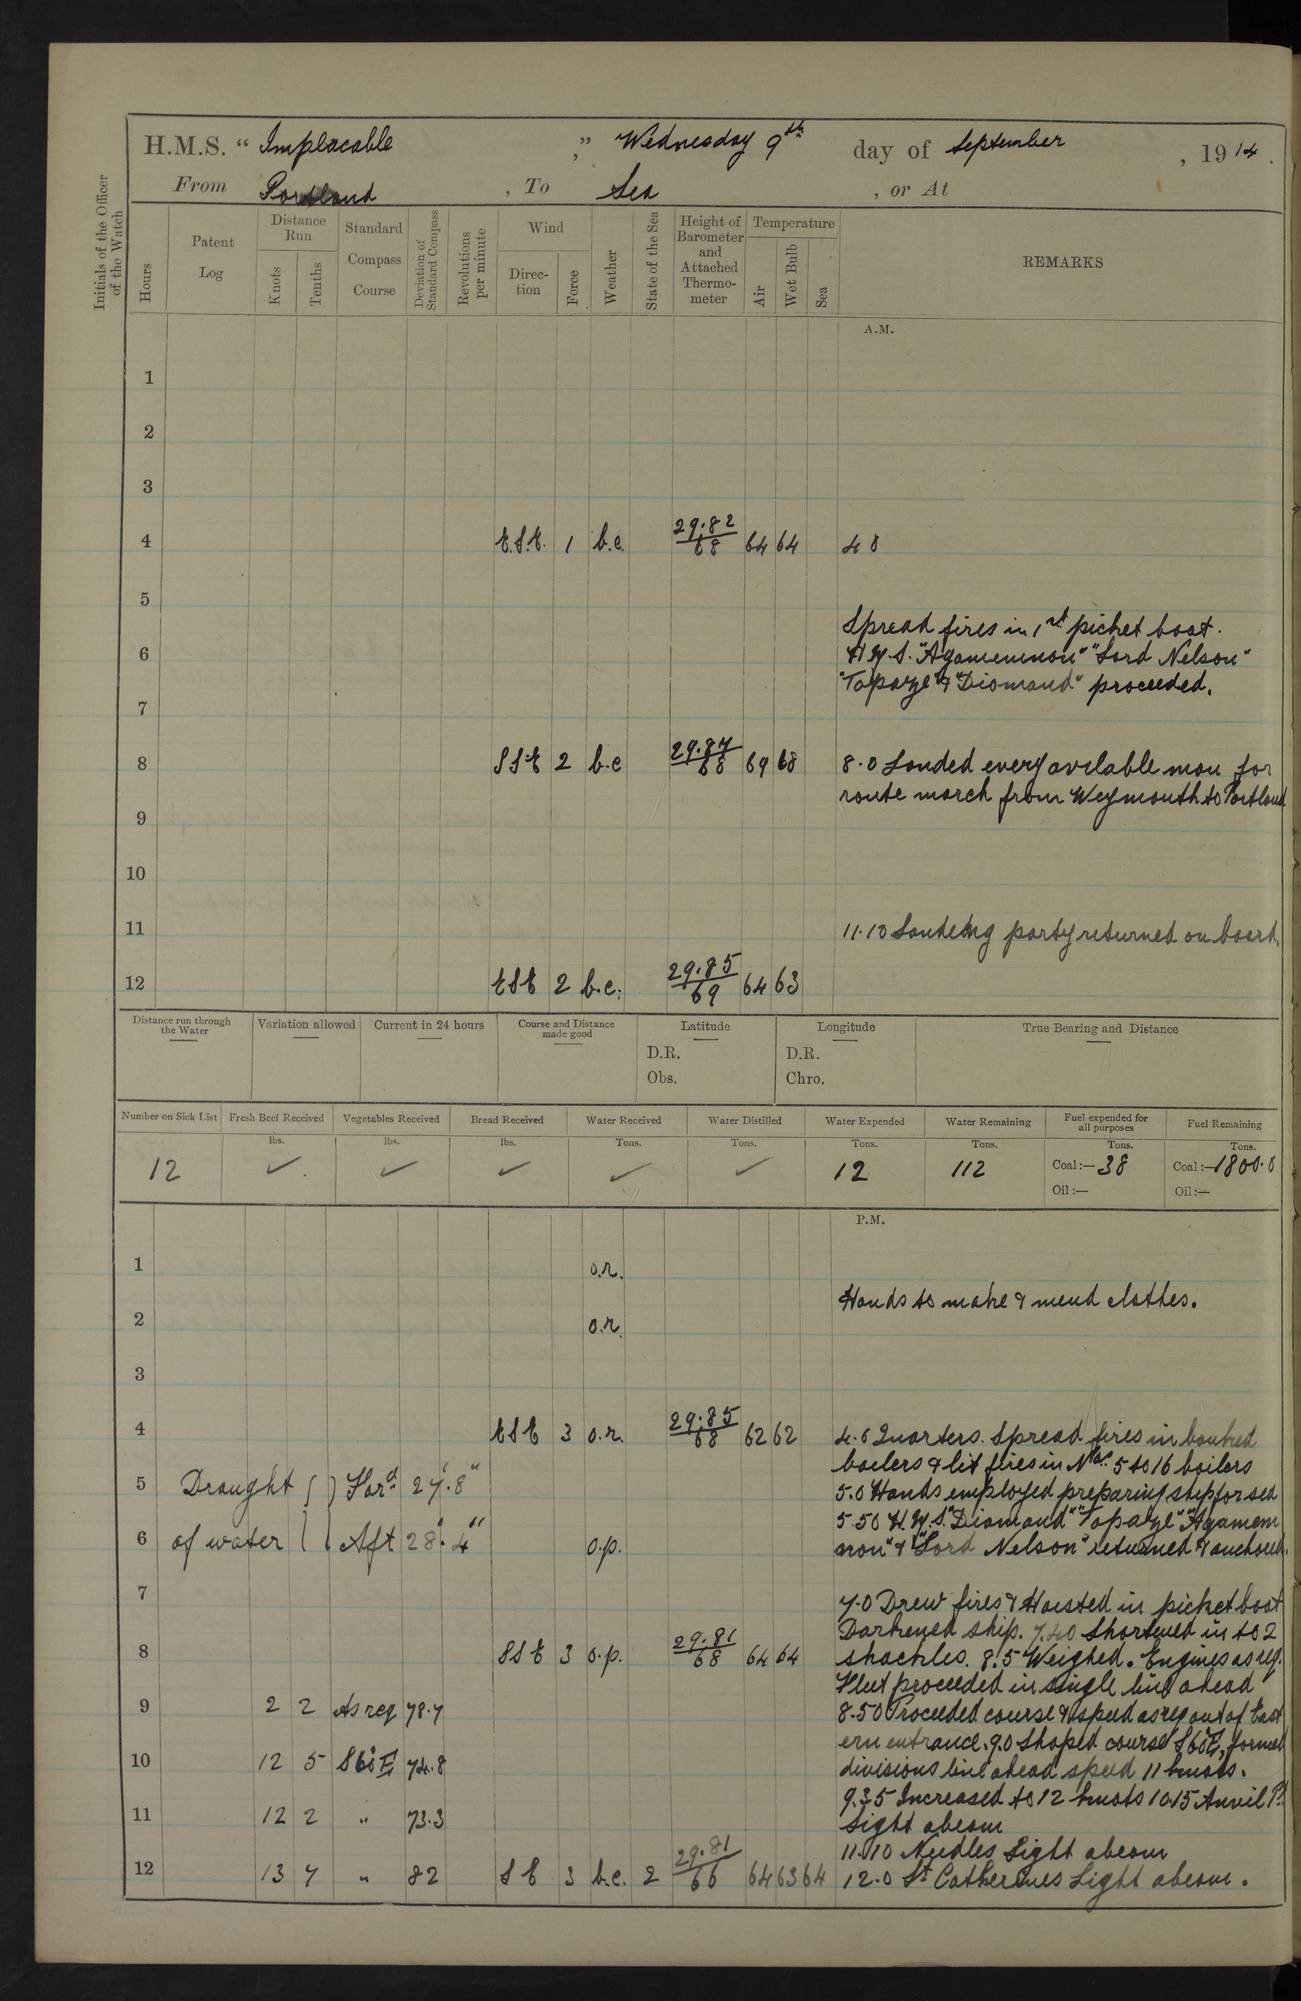 H.M.S. " Implacable ," Wednesday 9th day of September , 19 14 .
From Portland , To Sea , or At
Initials of the Officer of the Watch
Hours
Patent Log
Distance Run
Knots Tenths
Standard Compass Course
Deviation of Standard Compass
Revolutions per minute
Wind
Direction Force
Weather
State of the Sea
Height of Barometer and Attached Thermometer
Temperature
Air Wet Bulb Sea
REMARKS
A.M.
1
2
3
4 E.S.E. 1 b.c. 29.82/68 64 64 4 0
5
Spread fires in 1st picket boat.
6 H.M.S. "Agamemnon" "Lord Nelson"
"Topaze" & "Diamond" proceeded.
7
8 SSE 2 b.c 29.87/68 69 68 8.0 Landed every avilable man for
route march from Weymouth to Portland
9
10
11 11.10 Landing party returned on board.
12 ESE 2 b.c. 29.85/69 64 63
Distance run through the Water
Variation allowed
Current in 24 hours
Course and Distance made good
Latitude
D.R.
Obs.
Longitude
D.R.
Chro.
True Bearing and Distance
Number on Sick List Fresh Beef Received Vegetables Received Bread Received Water Received Water Distilled Water Expended Water Remaining Fuel expended for all purposes Fuel Remaining
lbs. lbs. lbs. Tons. Tons. Tons. Tons. Tons. Tons.
12 ✓ ✓ ✓ ✓ ✓ 12 112 Coal:— 38 Coal:— 1800.0
Oil:— Oil:—
P.M.
1 o.r.
Hands to make & mend clothes.
2 o.r.
3
4 ESE 3 o.r. 29.85/68 62 62 4.0 Quarters. Spread fires in banked
boilers & lit fires in Nos. 5 to 16 boilers
5 Draught Ford 27'.8" 5.0 Hands employed preparing ship for sea
5.50 H.M.S. "Diamond" "Topaze" "Agamem
6 of water Aft 28'.4" o.p. non" & "Lord Nelson" returned & anchored.
7 7.0 Drew fires & Hoisted in picket boat
Darkened ship. 7.40 Shortened in to 2
8 SSE 3 o.p. 29.81/68 64 64 shackles. 8.5 Weighed. Engines as req.
Fleet proceeded in single line ahead
9 2 2 As req 78.7 8.50 Proceeded course & speed as req out of East
ern entrance. 9.0 Shaped course S60°E, formed
10 12 5 S60°E 74.8 divisions line ahead speed 11 knots.
9.35 Increased to 12 knots 10.15 Anvil Pt.
11 12 2 " 73.3 Light abeam
11.10 Needles Light abeam
12 13 7 " 82 SE 3 b.c. 2 29.81/66 64 63 64 12.0 St Catherines Light abeam.